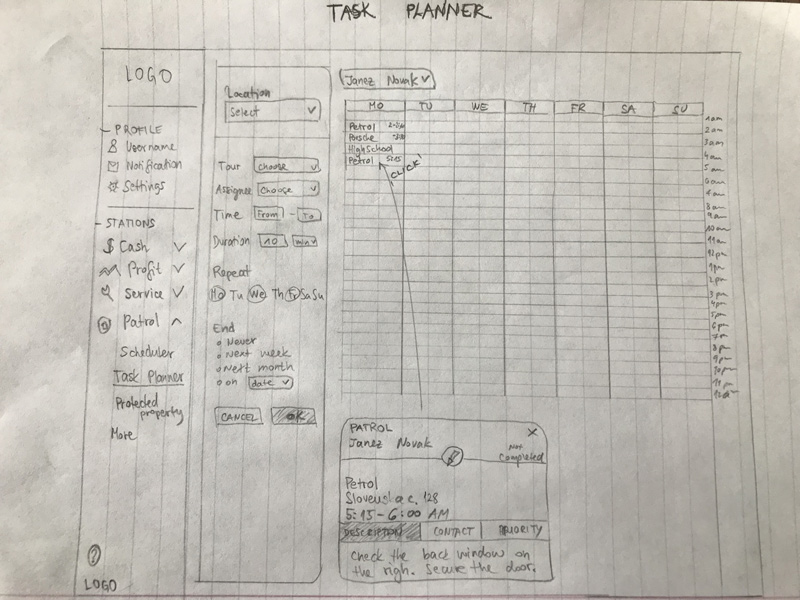 TASK PLANNER
LOGO
PROFILE
Username
Notification
Settings
STATIONS
$ Cash
Profit
Service
Patrol
Scheduler
Task Planner
Protected
property
More
?
LOGO
Location
Select
Tour Choose
Assignee Choose
Time From - To
Duration 10 min
Repeat
Mo Tu We Th Fr Sa Su
End
Never
Next week
Next month
on date
CANCEL OK
Janez Novak
MO TU WE TH FR SA SU
Petrol
Porsche
HighSchool
Petrol 5:15
CLICK
1am
2am
3am
4am
5am
6am
8am
9am
10am
11am
12pm
1pm
2pm
3pm
4pm
5pm
6pm
7pm
8pm
9pm
10pm
11pm
PATROL X
Janez Novak
Not
Completed
Petrol
5:15 - 6:00 AM
DESCRIPTION CONTACT PRIORITY
Check the back window on
the righ. Secure the door.